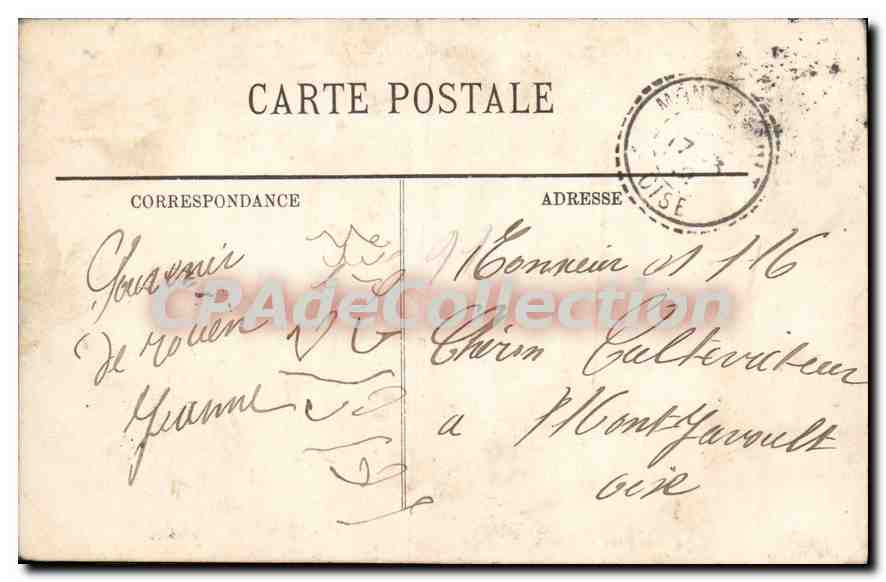 CARTE POSTALE
MONTJAVOULT
17 - 3
OISE
CORRESPONDANCE
ADRESSE
Souvenir
de rouen
Jeanne
Monsieur et M
Cultivateur
a Montjavoult
oise
CPAdeCollection